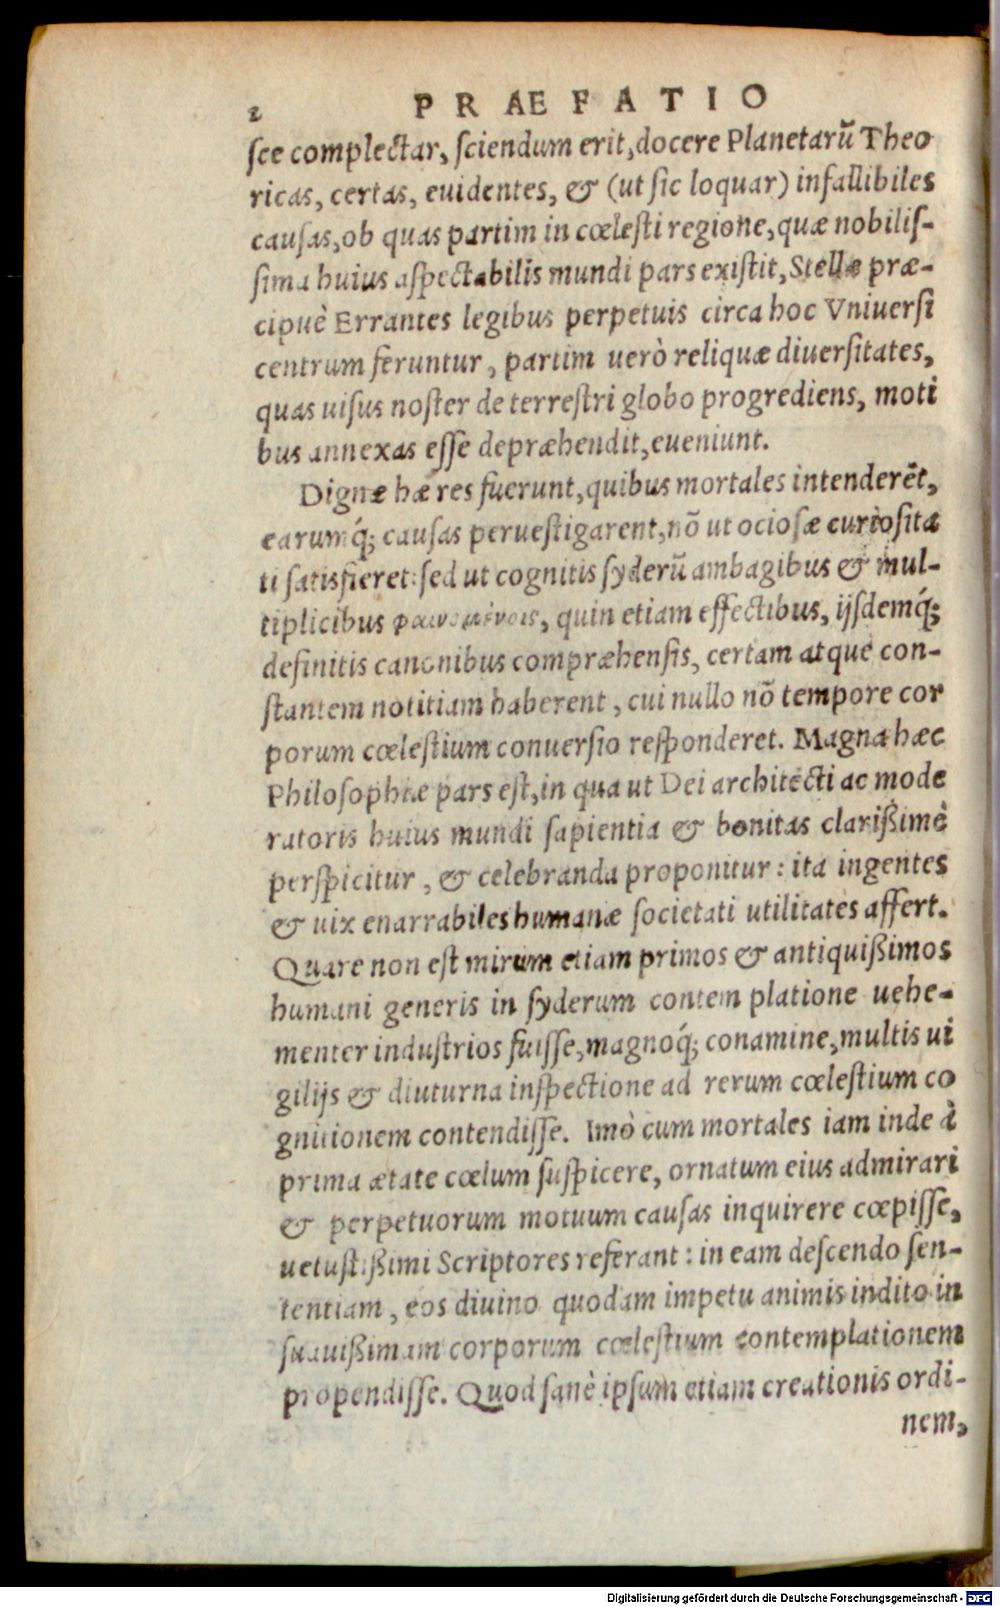 2 PRÆFATIO
ſce complectar, ſciendum erit, docere Planetarũ Theo
ricas, certas, euidentes, & (ut ſic loquar) infallibiles
cauſas, ob quas partim in cœleſti regione, quæ nobiliſ-
ſima huius aſpectabilis mundi pars exiſtit, Stellæ præ-
cipuè Errantes legibus perpetuis circa hoc Vniuerſi
centrum feruntur, partim uerò reliquæ diuerſitates,
quas uiſus noſter de terreſtri globo progrediens, moti
bus annexas eſſe depræhendit, eueniunt.
Dignæ hæ res fuerunt, quibus mortales intenderẽt,
earumq́; cauſas perueſtigarent, nõ ut ocioſæ curioſita
ti ſatisfieret: ſed ut cognitis ſyderũ ambagibus & mul-
tiplicibus φαινομένοις, quin etiam effectibus, ijſdemq́;
definitis canonibus compræhenſis, certam atque con-
ſtantem notitiam haberent, cui nullo nõ tempore cor
porum cœleſtium conuerſio reſponderet. Magna hæc
Philoſophiæ pars eſt, in qua ut Dei architecti ac mode
ratoris huius mundi ſapientia & bonitas clarißimè
perſpicitur, & celebranda proponitur: ita ingentes
& uix enarrabiles humanæ ſocietati utilitates affert.
Quare non eſt mirum etiam primos & antiquißimos
humani generis in ſyderum contem platione uehe-
menter induſtrios fuiſſe, magnoq́; conamine, multis ui
gilijs & diuturna inſpectione ad rerum cœleſtium co
gnitionem contendiſſe. Imò cum mortales iam inde à
prima ætate cœlum ſuſpicere, ornatum eius admirari
& perpetuorum motuum cauſas inquirere cœpiſſe,
uetuſtißimi Scriptores referant: in eam deſcendo ſen-
tentiam, eos diuino quodam impetu animis indito in
ſuauißimam corporum cœleſtium contemplationem
propendiſſe. Quod ſanè ipſum etiam creationis ordi-
nem,
Digitalisierung gefördert durch die Deutsche Forschungsgemeinschaft - DFG